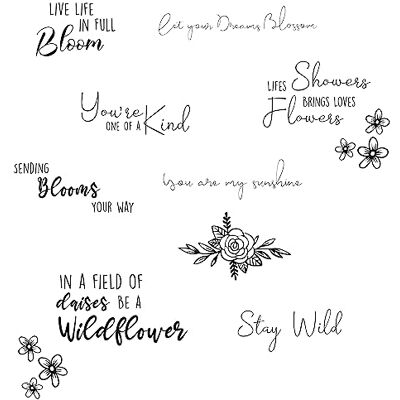 LIVE LIFE
IN FULL
Bloom
Let your Dreams Blossom
LIFES Showers
BRINGS LOVES
Flowers
You're
ONE OF A Kind
SENDING
Blooms
YOUR WAY
You are my sunshine
IN A FIELD OF
daises BE A
Wildflower
Stay Wild